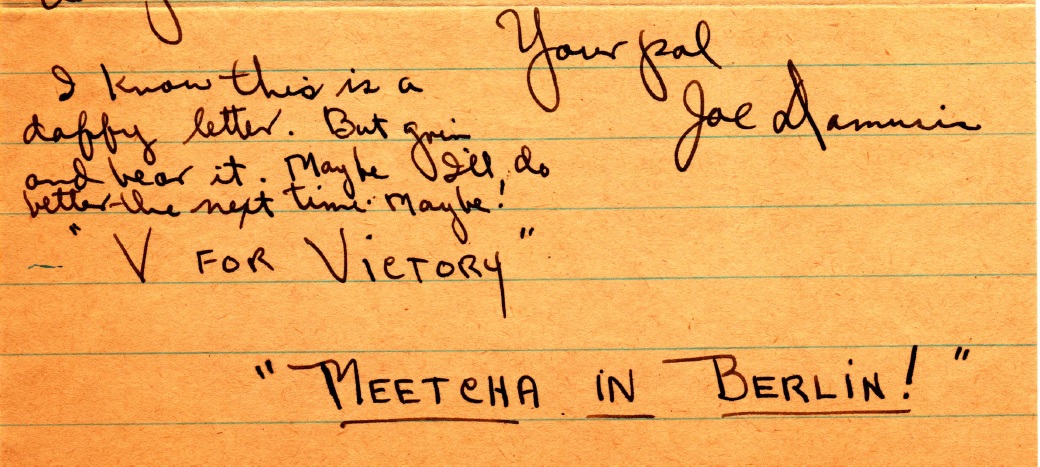 Your pal
Joe Damusis
I know this is a
daffy letter. But grin
and bear it. Maybe I'll do
better the next time. Maybe!
"V FOR VICTORY"
"MEETCHA IN BERLIN!"